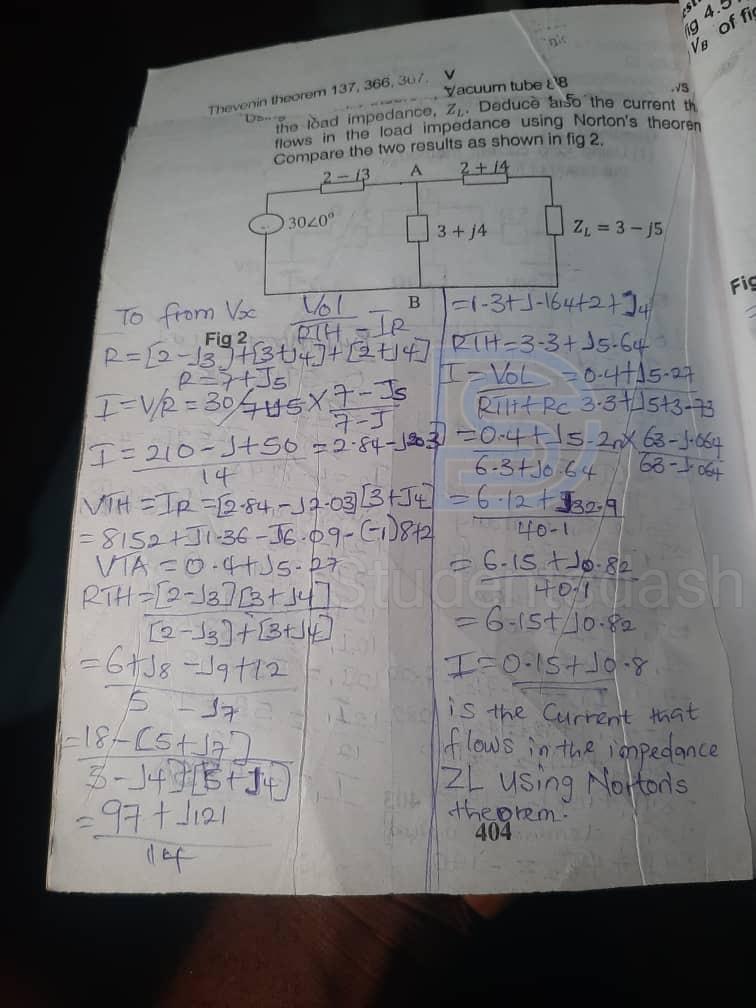 fig 4.5
V_B of fig
Thevenin theorem 137, 366, 367.
Vacuum tube
the load impedance, Z_L. Deduce also the current th
flows in the load impedance using Norton's theoren
Compare the two results as shown in fig 2.
2 – j3
A
2 + j4
30∠0°
3 + j4
Z_L = 3 – j5
B
Fig 2
Fig
To from Vx Vol / RTH - IR
R=[2-J3]+[3+J4]+[2+J4]
R=7+J5
I=V/R=30/7+J5 × 7-J5 / 7-J
I=210-J+50 / 14 = 2.84-J203
VTH=IR=[2.84-J2.03][3+J4]
=8152+J1.36-J6.09-(-1)812
VTA=0.4+J5.27
RTH=[2-J3][3+J4] / [2-J3]+[3+J4]
=6+J8-J9+12 / 5-J7
=18-(5+J7) / 3-J4][3+J4]
=97+J121 / 14
=1.3+J-164+2+J4
RTH=3.3+J5.64
I=VoL / RTH+RC = 0.4+J5.27 / 3.3+J5+3-73
=0.4+J5-2n / 6.3+J0.64 × 63-J.064 / 63-J.064
=6.12+J32.9 / 40.1
=6.15+J0.82 / 40.1
=6.15+J0.82
I=0.15+J0.8
is the current that
flows in the impedance
ZL using Norton's
theorem.
404
Studentsdash